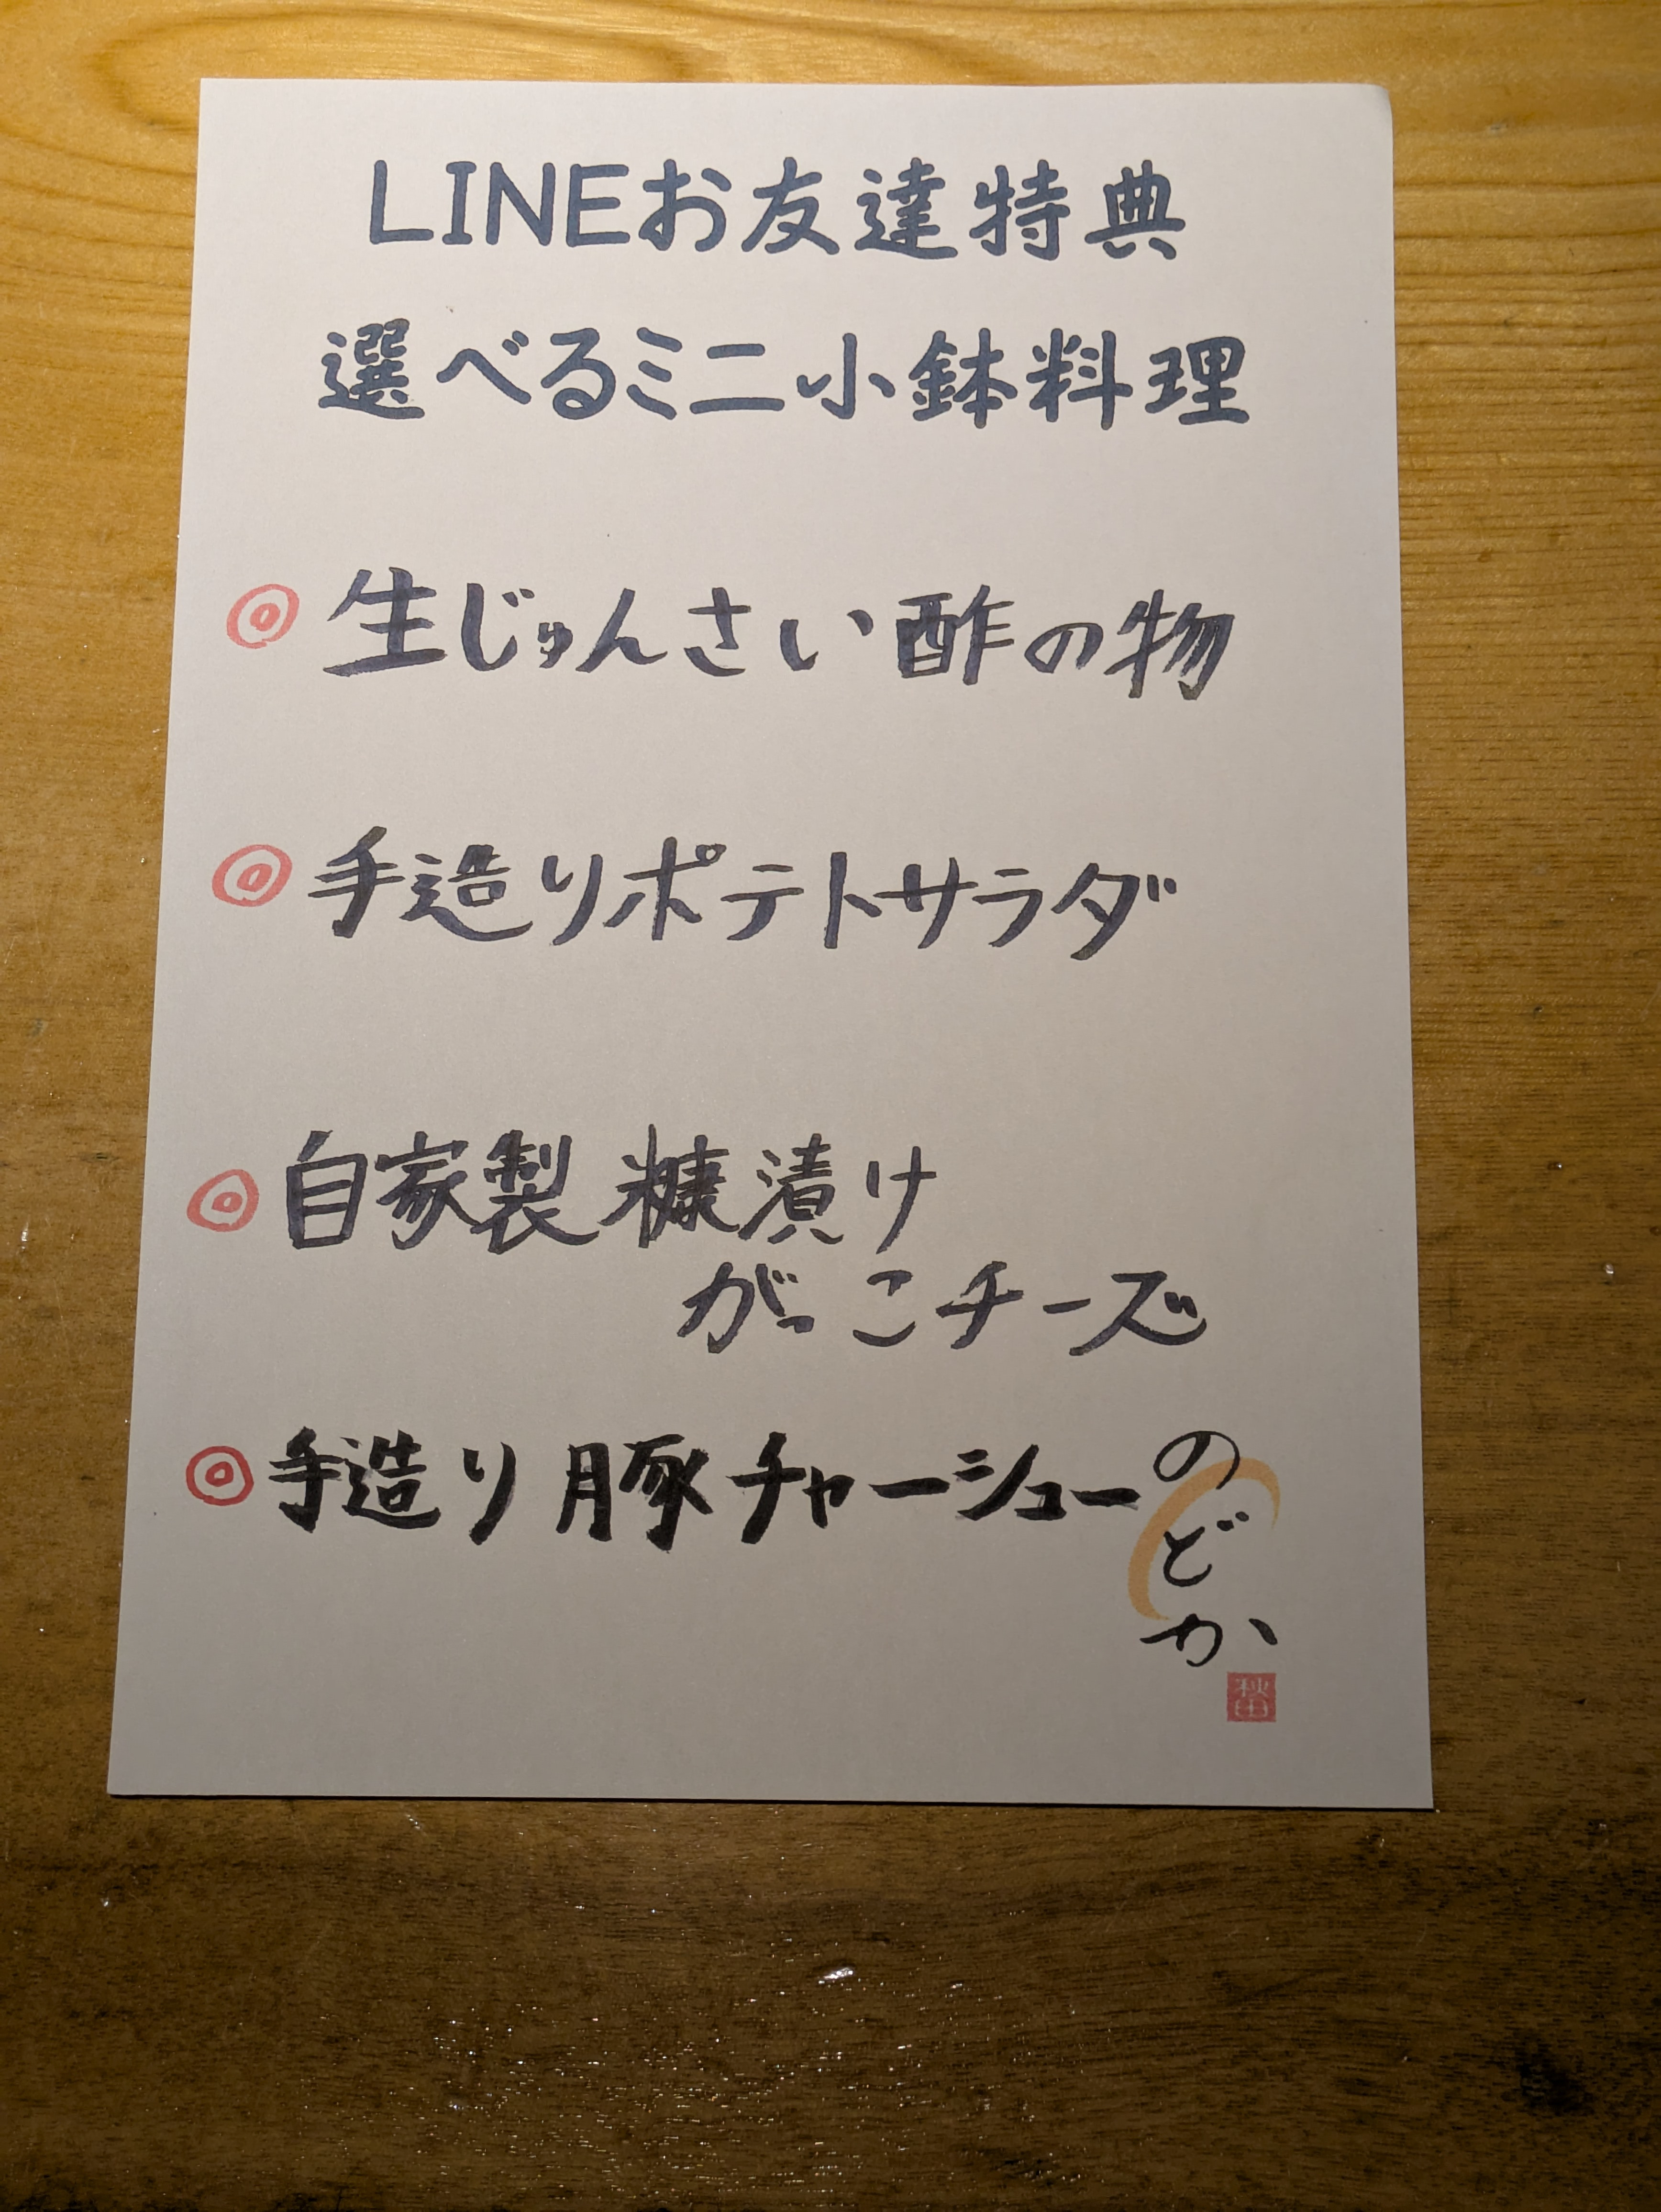 LINEお友達特典
選べるミニ小鉢料理
◎生じゅんさい酢の物
◎手造りポテトサラダ
◎自家製糠漬け
がっこチーズ
◎手造り豚チャーシュー
のどか
秋田